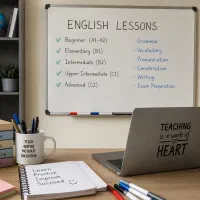 ENGLISH LESSONS
✓ Beginner (A1-A2)
✓ Elementary (B1)
✓ Intermediate (B2)
✓ Upper-Intermediate (C1)
✓ Advanced (C2)
- Grammar
- Vocabulary
- Pronunciation
- Conversation
- Writing
- Exam Preparation
TEACH
INSPIRE
MOTIVATE
Learn
Practice
Improve
Succeed
TEACHING
is a work of
HEART